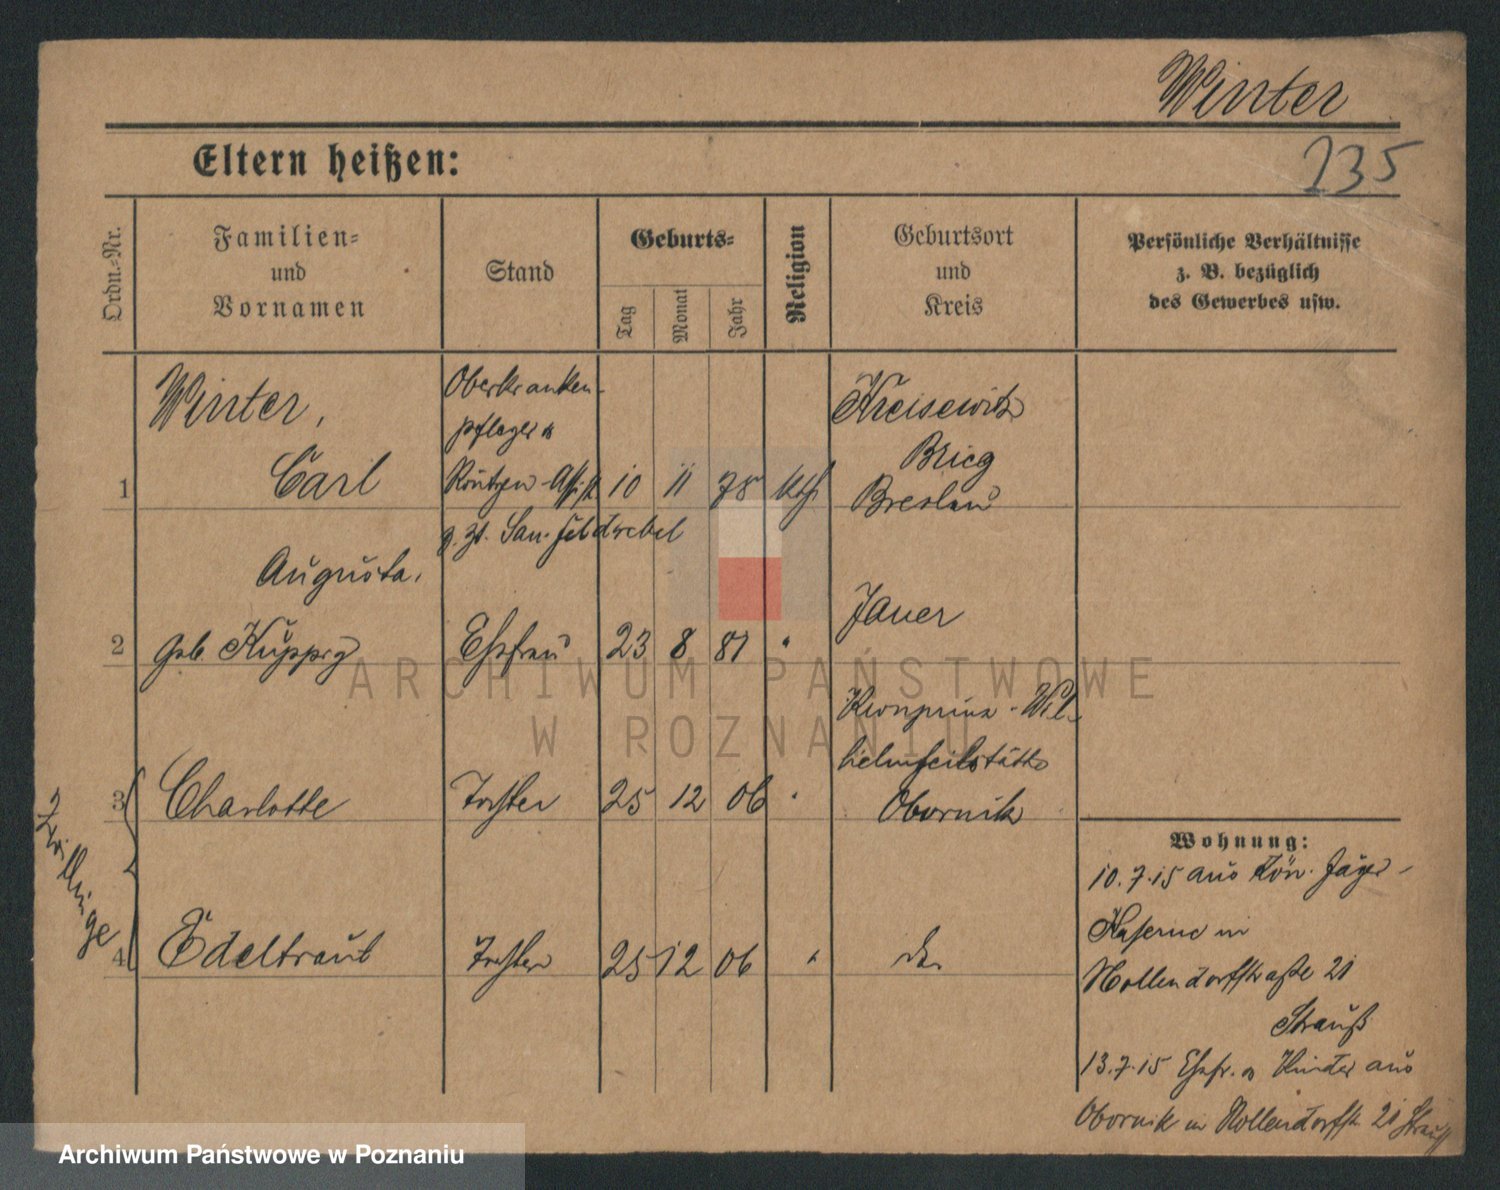 Winter
235
Eltern heißen:
Ordn.=Nr.
Familien=
und
Vornamen
Stand
Geburts=
Tag
Monat
Jahr
Religion
Geburtsort
und
Kreis
Persönliche Verhältnisse
z. B. bezüglich
des Gewerbes usw.
Winter,
Carl
Oberkranken-
pfleger u
Röntgen-Assist
z. Zt. San. Feldwebel
1
10 11 78 kath
Kreisewitz
Brieg
Breslau
Augusta,
2 geb. Ehefrau 23 8 81 "
Jauer
Kronprinz-Wil-
helmheilstätte
Obornik
Zwillinge
3 Charlotte Tochter 25 12 06 "
4 Edeltraut Tochter 25 12 06 " do
Wohnung:
10.7.15 aus Kön. Jäger-
Kaserne in
Nollendorfstraße 21
Strauß
13.7.15 Ehefr. u Kinder aus
Obornik in Nollendorfstr 21 Strauß
ARCHIWUM PAŃSTWOWE
W POZNANIU
Archiwum Państwowe w Poznaniu